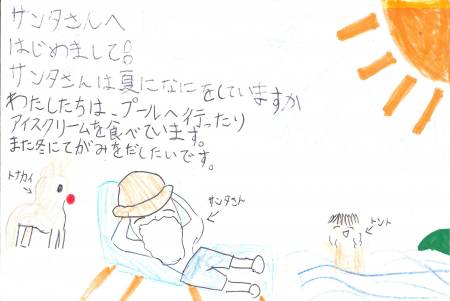 サンタさんへ
はじめまして!
サンタさんは夏になにをしていますか
わたしたちは、プールへ行ったり
アイスクリームを食べています。
また冬にてがみをだしたいです。
トナカイ
サンタさん
トント